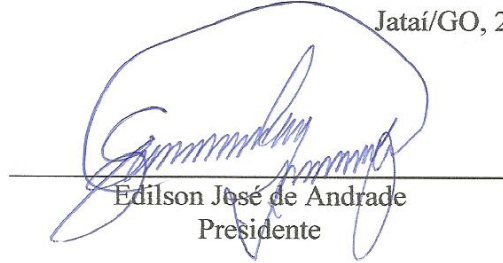 Jataí/GO, 2
Edilson José de Andrade
Presidente